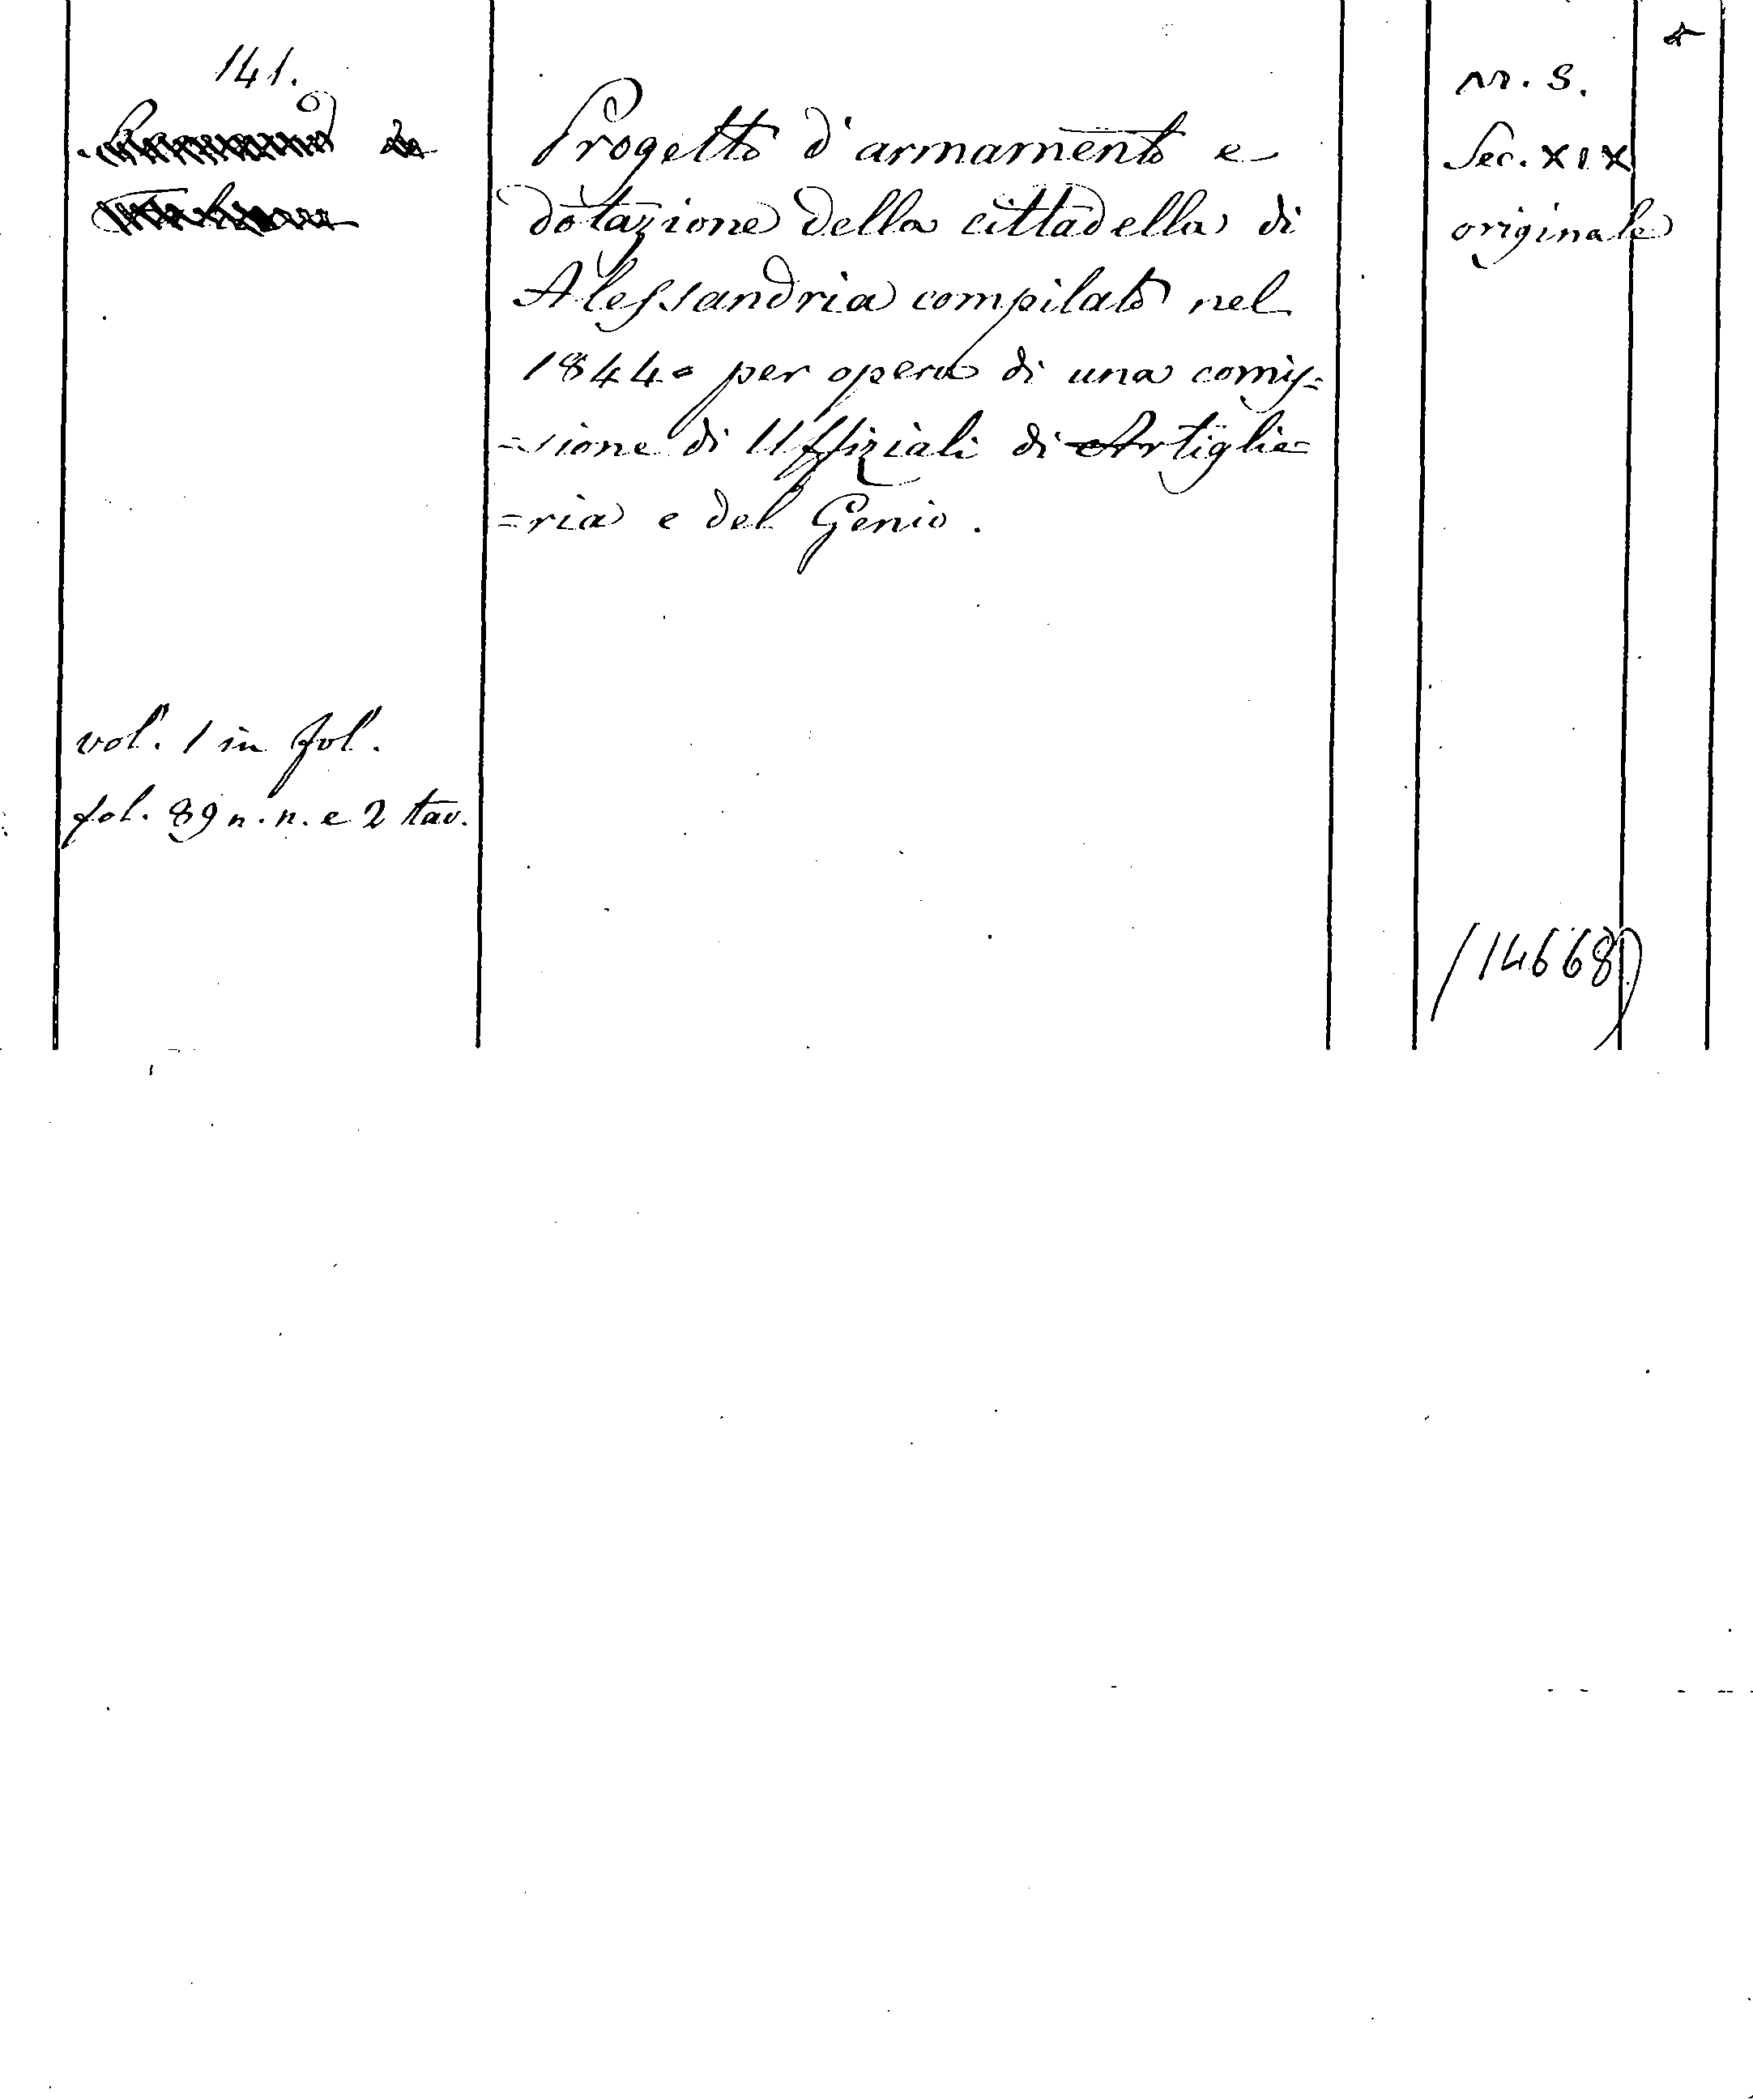 141.
Progetto d'armamento e
dotazione della cittadella di
Alessandria compilato nel
1844 = per opera di una comis=
=sione di Uffiziali di Artiglie=
=ria e del Genio.
vol. 1 in fol.
fol. 89 n. n. e 2 tav.
M. S.
Sec. XIX
originale
(14668)